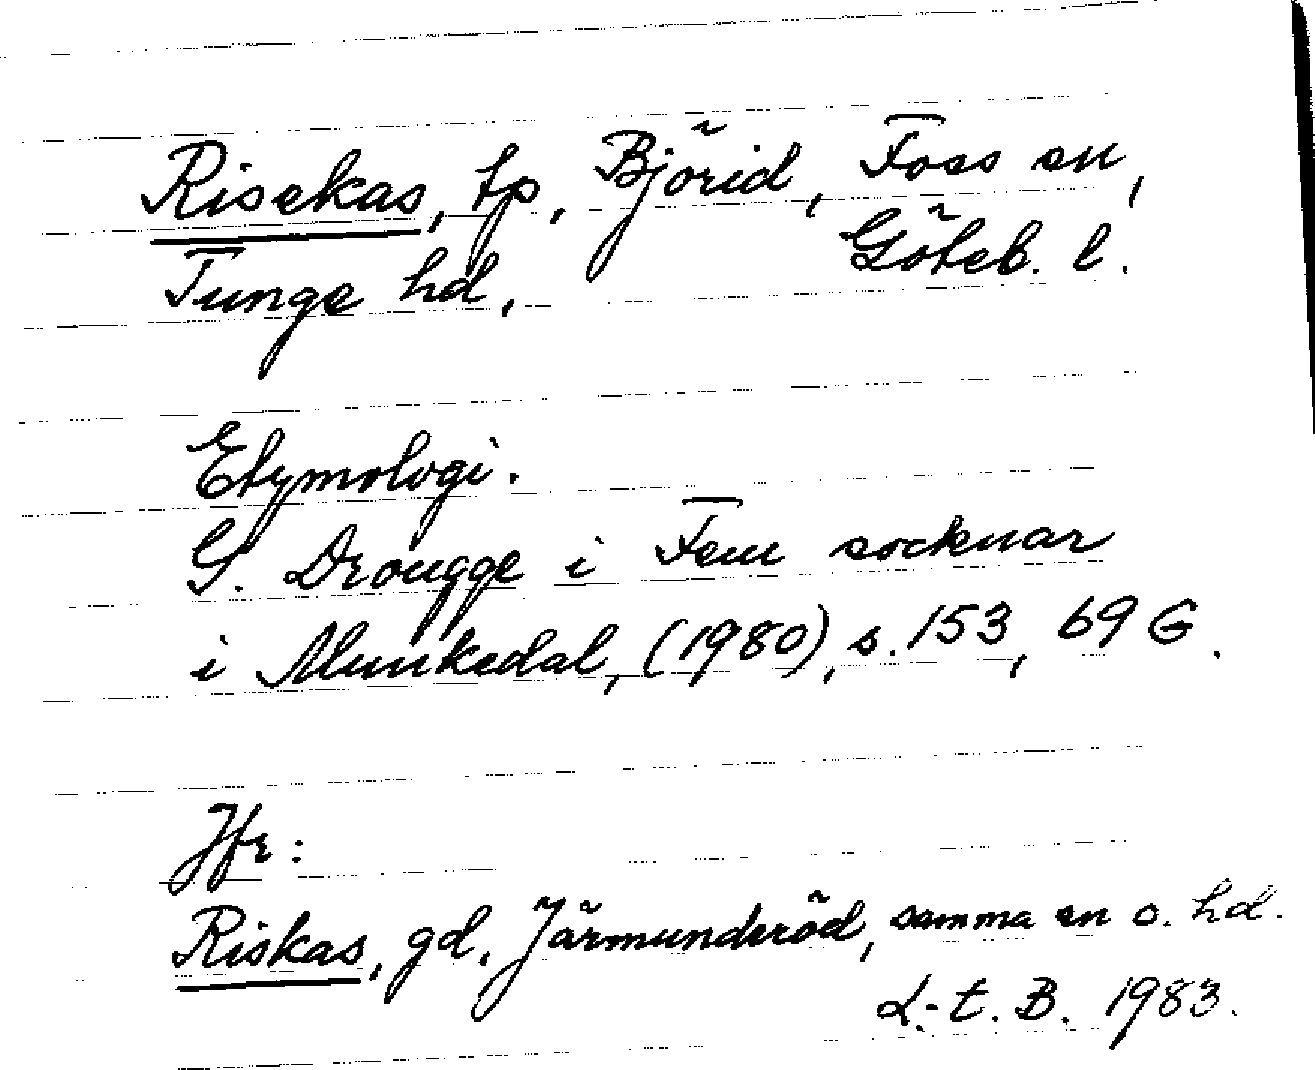 Risekas, tp, Björid, Foss sn,
Tunge hd. Göteb. l.
Etymologi.
G. Drougge i Fem socknar
i Munkedal, (1980), s. 153, 69 G.
Jfr:
Riskas, gd. Järmunderöd, samma sn o. hd.
L.-t. B. 1983.